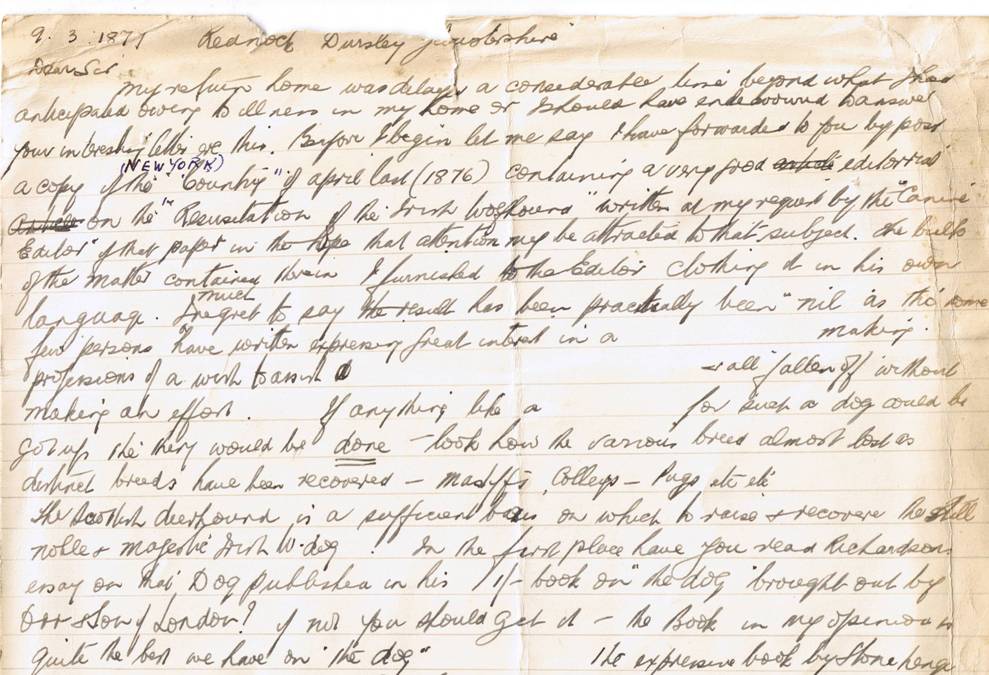 9. 3. 1877 Rednock Dursley Gloucestershire
Dear Sir
My return home was delayed a considerable time beyond what I had
anticipated owing to illness in my home or I should have endeavoured to answer
your interesting letter ere this. Before I begin let me say I have forwarded to you by post
(NEW YORK)
a copy of the "Country" of april last (1876) containing a very good article editorial
on the "Resusitation of the Irish Wolfhound" written at my request by the "Canine
Editor" of that paper in the hope that attention may be attracted to that subject. The bulk
of the matter contained therein I furnished to the Editor clothing it in his own
much
language. I regret to say the result has been practically been "nil" as tho' some
few persons have written expressing great interest in a making
professions of a wish to assist & all fallen off without
making an effort. If anything like a for such a dog could be
got up the thing would be done – look how the various breed almost lost as
distinct breeds have been recovered – Mastiffs, Colleys – Pugs etc etc
The Scottish deerhound is a sufficient basis on which to raise & recover the still
noble & majestic Irish W. dog. In the first place have you read Richardsons
essay on that Dog published in his 1/- book on "the dog" brought out by
Orr & Son of London? if not you should get it – the Book in my opinion is
quite the best we have on "the dog" the expensive book by Stonehenge